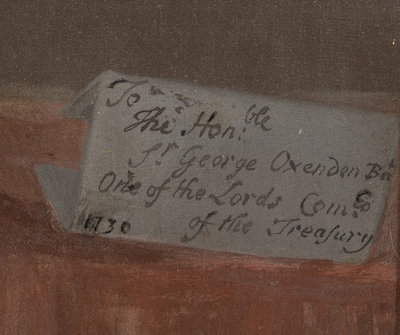 To
The Hon:ble
Sr George Oxenden Bart
One of the Lords Comrs
of the Treasury
1730